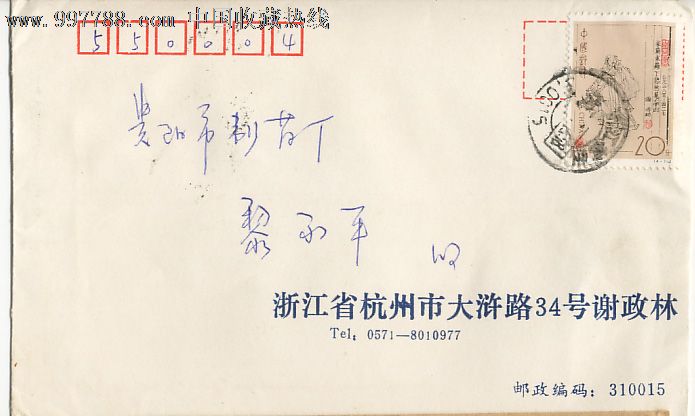 www.997788.com 中国收藏热线
550004
贵阳市制药厂
黎永平 收
20分
浙江省杭州市大浒路34号谢政林
Tel: 0571—8010977
邮政编码：310015